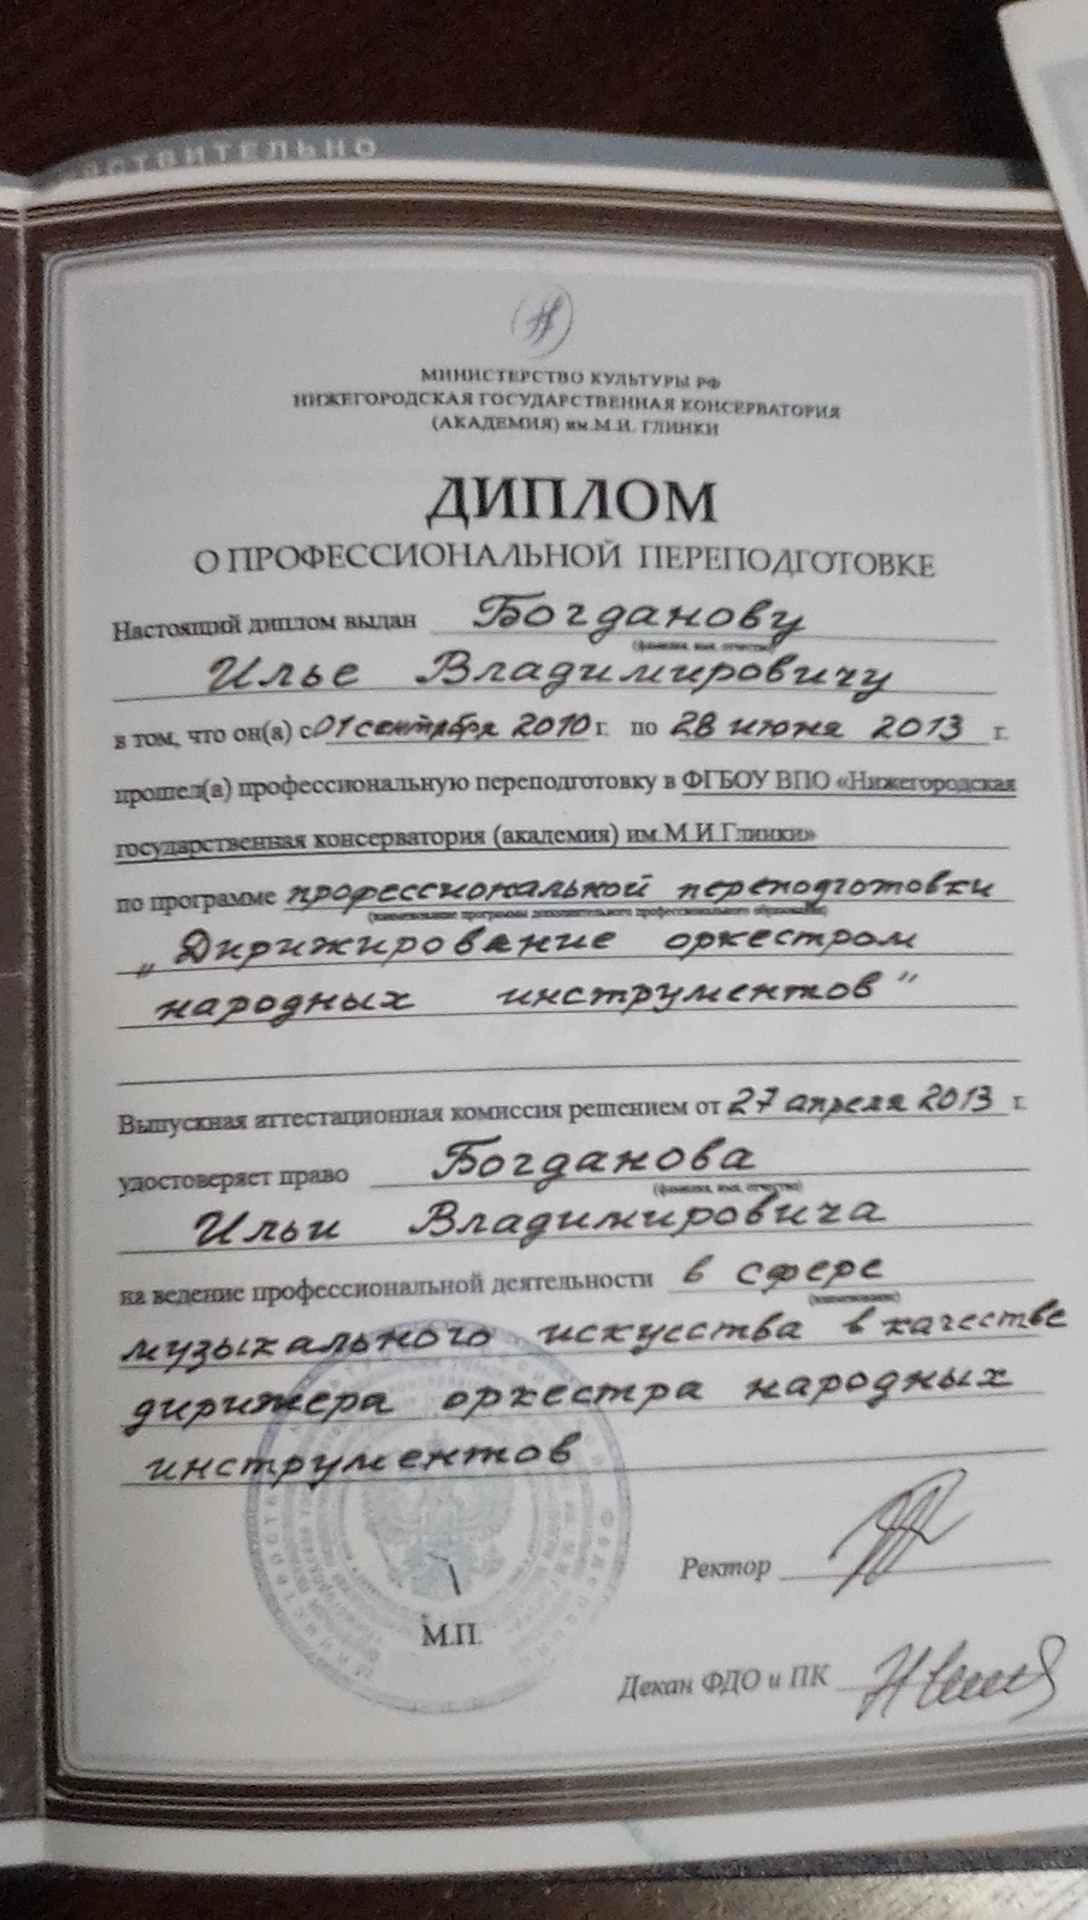 МИНИСТЕРСТВО КУЛЬТУРЫ РФ
НИЖЕГОРОДСКАЯ ГОСУДАРСТВЕННАЯ КОНСЕРВАТОРИЯ
(АКАДЕМИЯ) им.М.И. ГЛИНКИ
ДИПЛОМ
О ПРОФЕССИОНАЛЬНОЙ ПЕРЕПОДГОТОВКЕ
Настоящий диплом выдан Богданову
(фамилия, имя, отчество)
Илье Владимировичу
в том, что он(а) с 01 сентября 2010 г. по 28 июня 2013 г.
прошел(а) профессиональную переподготовку в ФГБОУ ВПО «Нижегородская
государственная консерватория (академия) им.М.И.Глинки»
по программе профессиональной переподготовки
(наименование программы дополнительного профессионального образования)
„Дирижирование оркестром
народных инструментов"
Выпускная аттестационная комиссия решением от 27 апреля 2013 г.
удостоверяет право Богданова
(фамилия, имя, отчество)
Ильи Владимировича
на ведение профессиональной деятельности в сфере
(наименование)
музыкального искусства в качестве
дирижера оркестра народных
инструментов
Ректор
М.П.
Декан ФДО и ПК